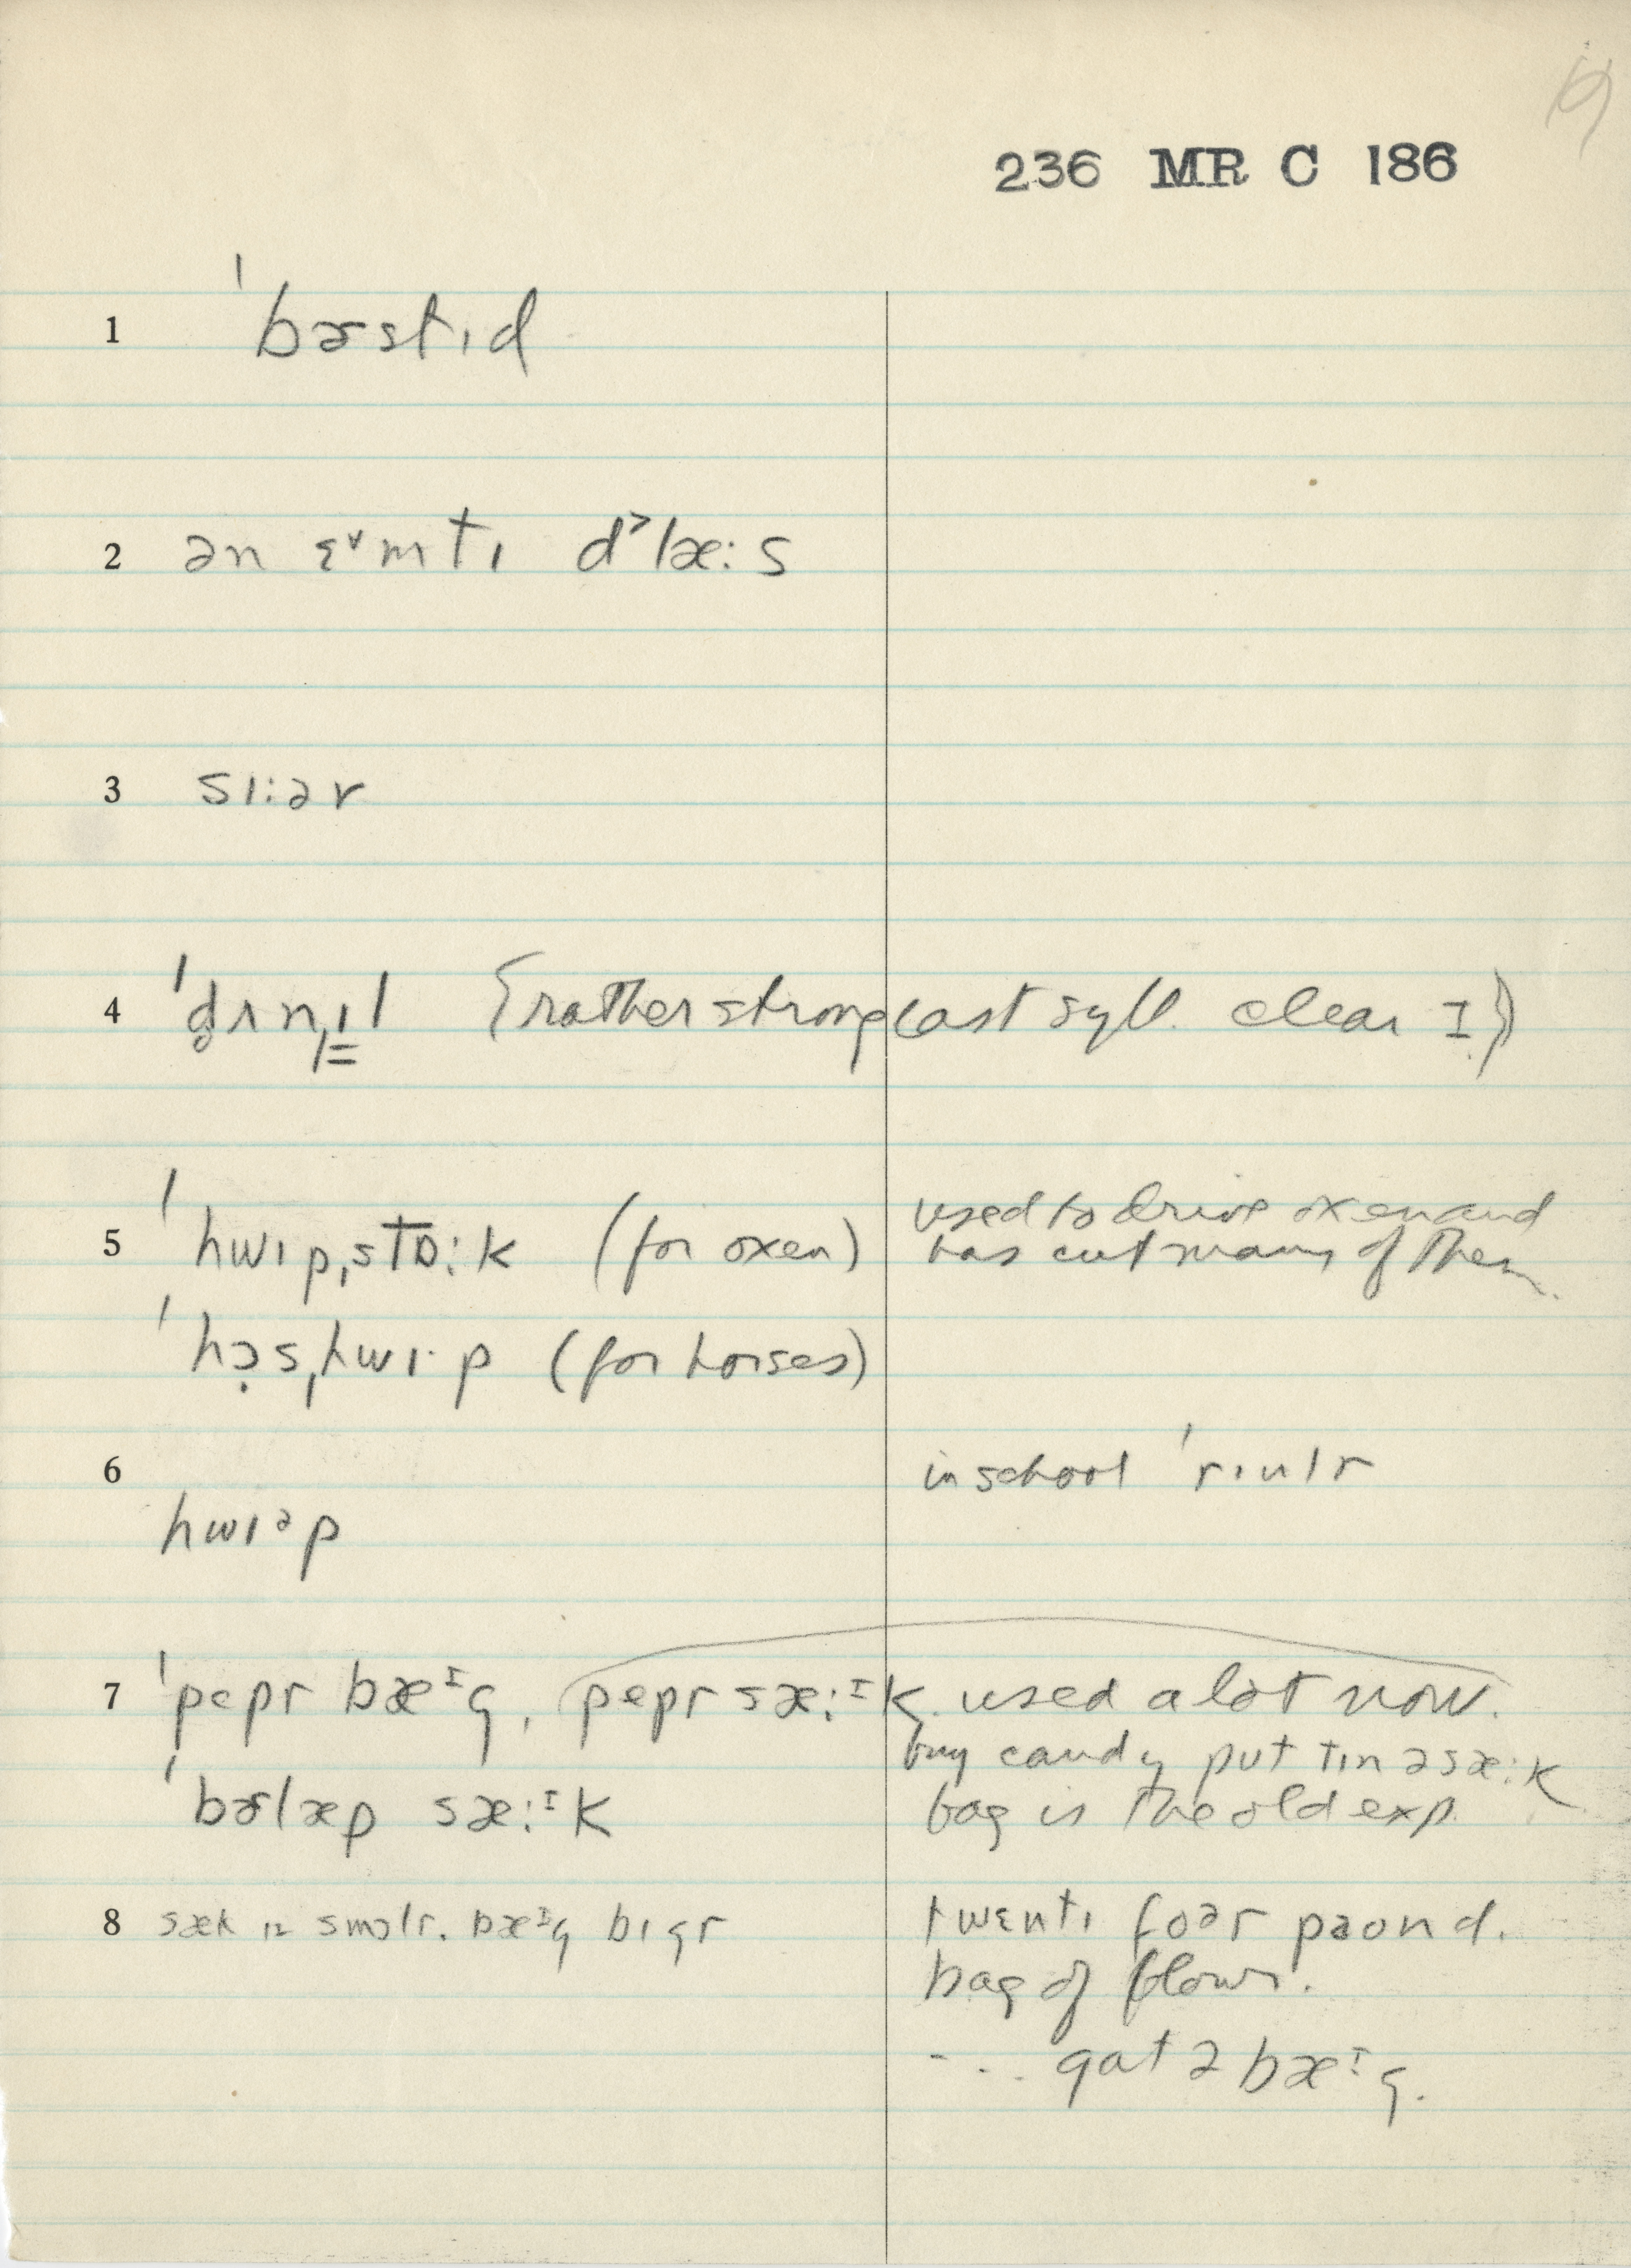 19
236 MR C 186
1 ˈbɚstɪd
2 ən ɛ˅mtɪ d˃læ:s
3 sɪ:ər
4 ˈd̥ʌnˌɪ̳l (rather strong last syll. clear I)
5 ˈhwɪpˌstɒ:k (for oxen) used to drive oxen and
has cut many of them.
ˈhɔ̣sˌhwɪ·p (for horses)
6 in school ˈrɪulr
hwɪᵊp
7 ˈpepr bæᴵg, pepr sæ:ᴵk used a lot now.
buy candy put tɪn ə sæ:k
ˈbɚlæp sæ:ᴵk bag is the old exp.
8 sæk ɪz smɔlr. bæᴵg bɪgr twɛntɪ foər paond.
bag of flour.
... gat ə bæᴵg.